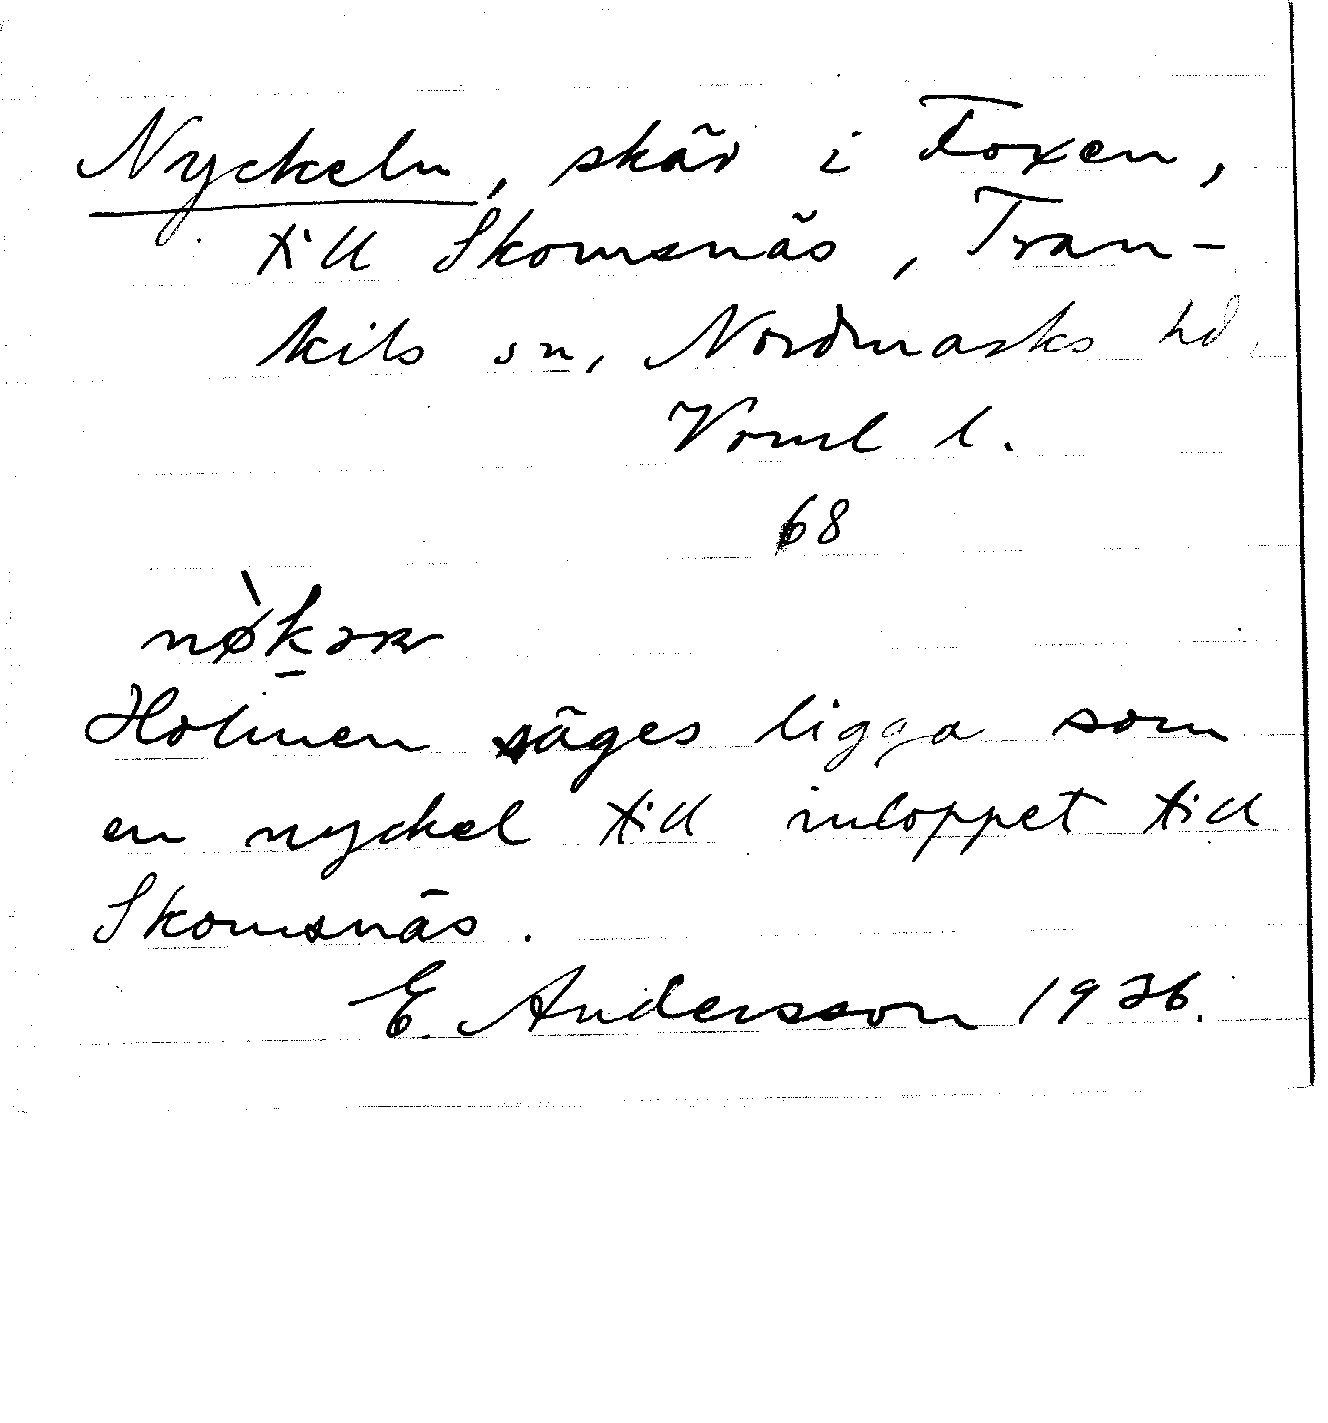 Nyckeln, skär i Foxen,
till Skomsnäs, Tran-
kils sn, Nordmarks hd.
Vrml l.
68
Holmen säges ligga som
en nyckel till inloppet till
Skomsnäs.
E. Andersson 1926.